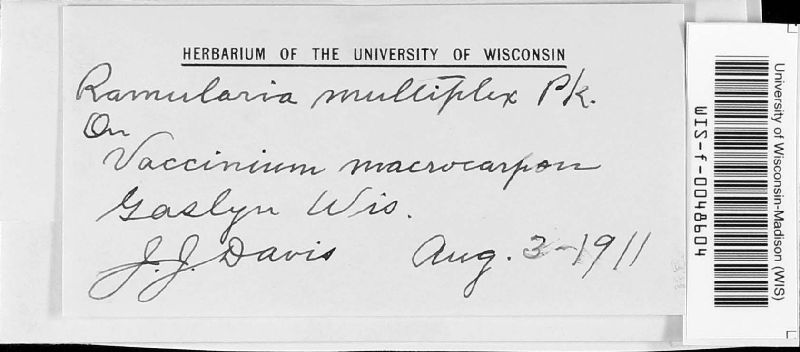 HERBARIUM OF THE UNIVERSITY OF WISCONSIN
Ramularia multiplex Pk.
On
Vaccinium macrocarpon
Gaslyn Wis.
J. J. Davis Aug. 3-1911
University of Wisconsin-Madison (WIS)
WIS-f-0048604